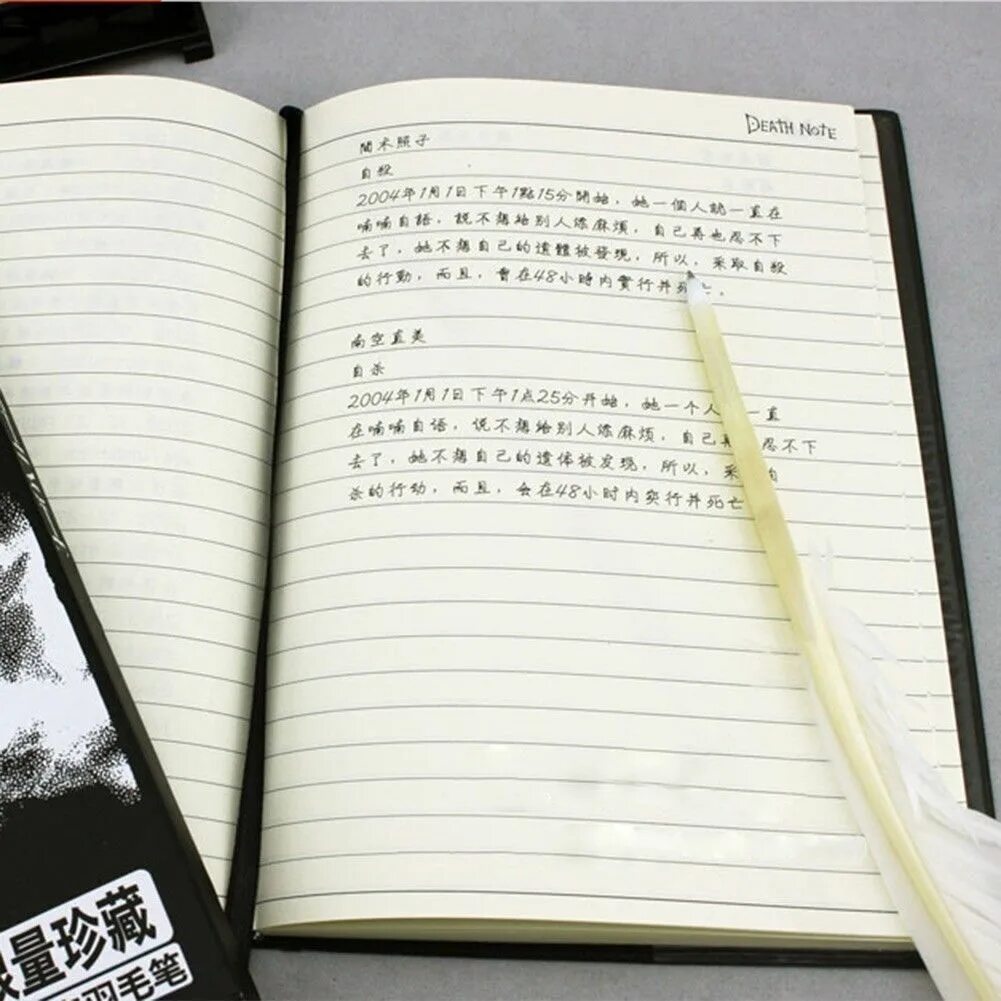 DEATH NOTE
間木照子
自殺
2004年1月1日下午1點15分開始，她一個人就一直在
喃喃自語，說不想給別人添麻煩，自己再也忍不下
去了，她不想自己的遺體被發現，所以，采取自殺
的行動，而且，會在48小時內實行并死亡．
南空直美
自杀
2004年1月1日下午1点25分开始，她一个人 一直
在喃喃自语，说不想给别人添麻烦，自己再 忍不下
去了，她不想自己的遗体被发现，所以，采
杀的行动，而且，会在48小时内实行并死亡
量珍藏
羽毛笔